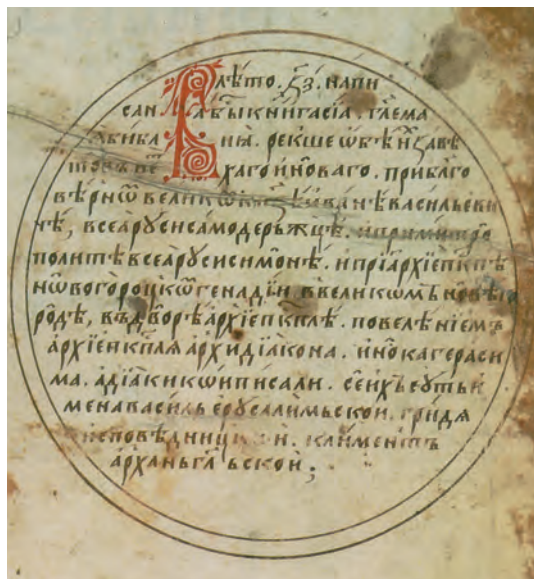 В лѣто . ҂з҃з . напи
сана бы книга сїа . гл҃ема
а библиа . рекше ѡбѣихъ завѣ
товъ ветхаго и новаго . при бл҃го
вѣрнѡ великѡ кн҃зѣ иванѣ васильеви
чѣ, всеа руси самодерьжцѣ . и при митро
полите всеа руси симонѣ . и при архїеп҃кпѣ
нѡвогороцкѡ генадїи в великѡмъ новѣго
родѣ, въ дворѣ архїеп҃кплѣ . повелѣнїемъ
архїеп҃кпля архидїакона . инока гераси
ма . а дїаки кѡи писали . се ихъ суть и
мена василь ерусалимьскои . гридя
исповѣдницкои . климентъ
арханьг҃льскои ;